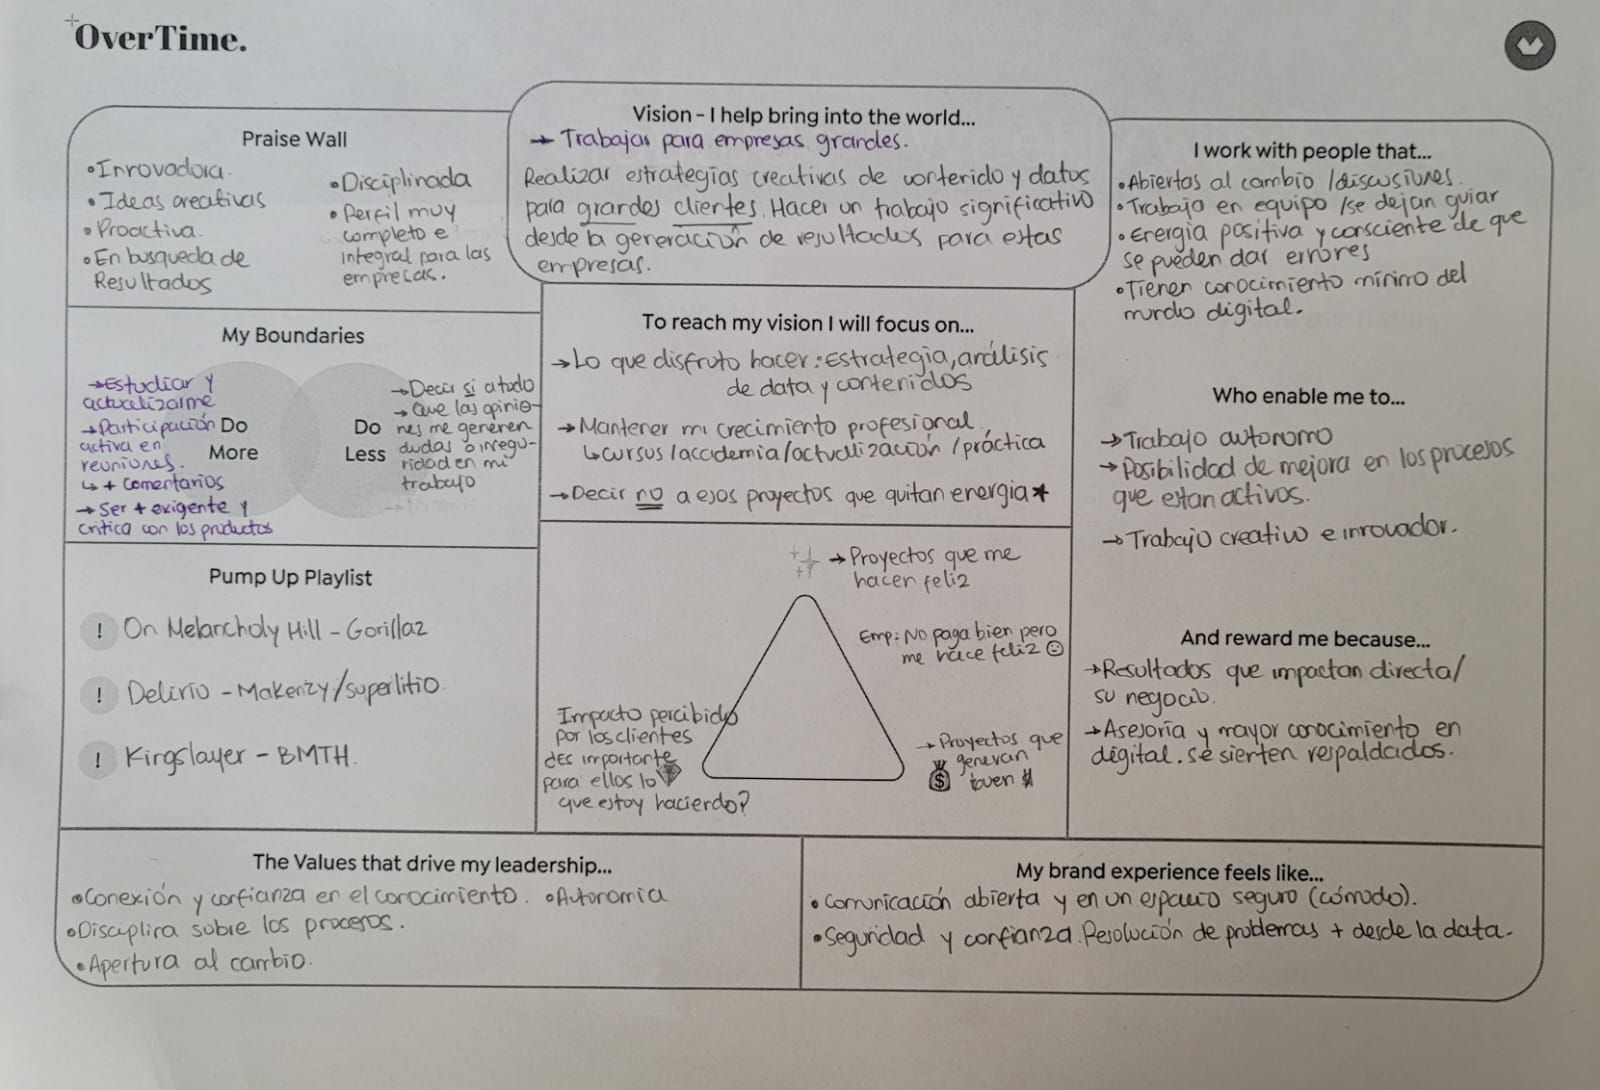 OverTime.
Praise Wall
•Innovadora.
•Ideas creativas
•Proactiva.
•En busqueda de
Resultados
•Disciplinada
•Perfil muy
completo e
integral para las
empresas.
Vision - I help bring into the world...
→ Trabajar para empresas grandes.
Realizar estrategias creativas de contenido y datos
para grandes clientes. Hacer un trabajo significativo
desde la generación de resultados para estas
empresas.
I work with people that...
•Abiertas al cambio /discusiones.
•Trabajo en equipo /se dejan guiar
•Energia positiva y consciente de que
se pueden dar errores
•Tienen conocimiento mínimo del
mundo digital.
My Boundaries
→Estudiar y
actualizarme
→Participación
activa en
reuniones.
↳ + comentarios
→ Ser + exigente y
critica con los productos
Do
More
Do
Less
→Decir si a todo
→ Que las opinio-
nes me generen
dudas o insegu-
ridad en mi
trabajo
To reach my vision I will focus on...
→Lo que disfruto hacer: Estrategia, análisis
de data y contenidos
→Mantener mi crecimiento profesional.
↳cursos/academia/actualización/práctica
→Decir no a esos proyectos que quitan energia★
Who enable me to...
→Trabajo autonomo
→Posibilidad de mejora en los procesos
que estan activos.
→Trabajo creativo e innovador.
Pump Up Playlist
! On Melancholy Hill - Gorillaz
! Delirio - Makenzy/superlitio
! Kingslayer - BMTH.
→Proyectos que me
hacen feliz
Emp: No paga bien pero
me hace feliz ☺
Impacto percibido
por los clientes
¿Es importante
para ellos lo
que estoy haciendo?
→Proyectos que
generan
buen $
And reward me because...
→Resultados que impactan directa/
su negocio.
→Asesoría y mayor conocimiento en
digital. se sienten respaldados.
The Values that drive my leadership...
•Conexión y confianza en el conocimiento. •Autonomia
•Disciplina sobre los procesos.
•Apertura al cambio.
My brand experience feels like...
•Comunicación abierta y en un espacio seguro (cómodo).
•Seguridad y confianza. Resolución de problemas + desde la data.